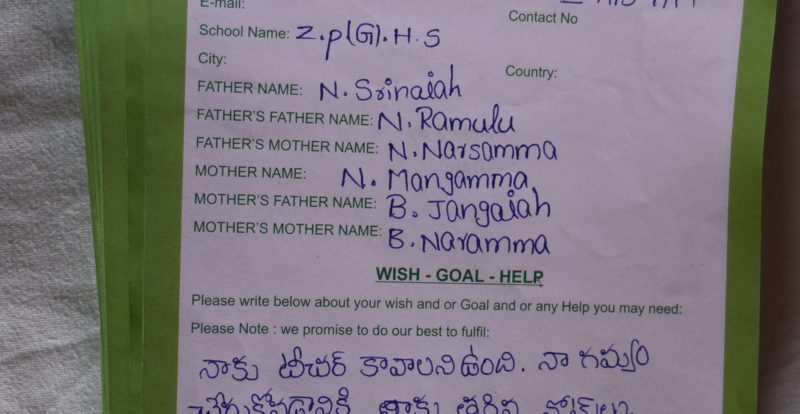 E-mail:
Contact No
School Name: Z.p(G).H.S
City:
Country:
FATHER NAME: N. Srinaiah
FATHER'S FATHER NAME: N. Ramulu
FATHER'S MOTHER NAME: N. Narsamma
MOTHER NAME: N. Mangamma
MOTHER'S FATHER NAME: B. Jangaiah
MOTHER'S MOTHER NAME: B. Naramma
WISH - GOAL - HELP
Please write below about your wish and or Goal and or any Help you may need:
Please Note : we promise to do our best to fulfil:
నాకు టీచర్ కావాలని ఉంది. నా గమ్యం
చేరుకోవడానికి నాకు తగిన